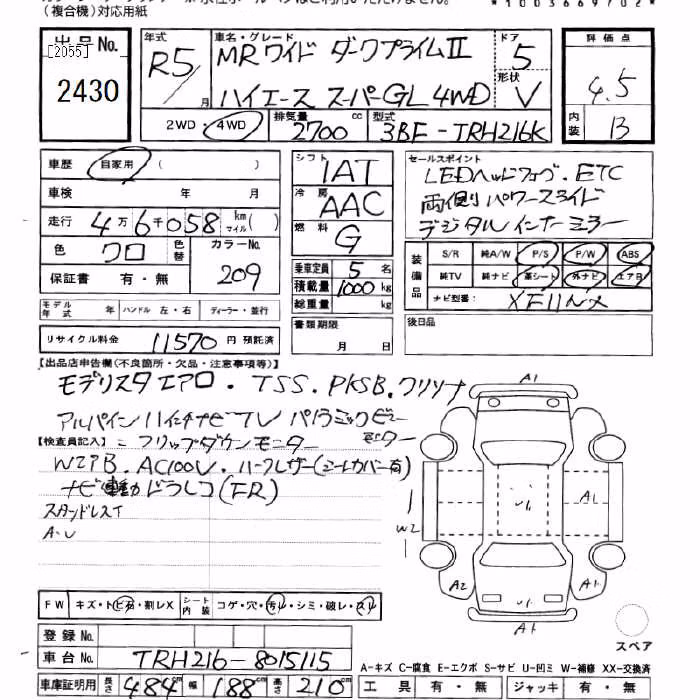 (複合機)対応用紙
*1003669702*
出品No.
[2055]
2430
年式 R5/ 月
車名・グレード MRワイド ダークプライムⅡ
ハイエース スーパーGL 4WD
ドア 5
形状 V
2WD・4WD
排気量 2700 cc
型式 3BF-TRH216K
評価点 4.5
内装 B
車歴 自家用 ( )
車検 年 月
走行 4万6千058 km マイル ( )
色 クロ 色替 カラーNo. 209
保証書 有・無
シフト 1AT
冷房 AAC
燃料 G
乗車定員 5 名
積載量 1000 kg
総重量 kg
セールスポイント
LEDヘッドフォグ・ETC
両側パワースライド
デジタルインナーミラー
装備品
S/R 純A/W P/S P/W ABS
純TV 純ナビ 革シート 外ナビ エアB
ナビ型番: XF11NX
モデル年式 年 ハンドル 左・右 ディーラー・並行
リサイクル料金 11570 円 預託済
書類期限 月 日
後日品
【出品店申告欄(不良箇所・欠品・注意事項等)】
モデリスタエアロ・TSS.PKSB.クリソナ
アルパイン11インチナビTV パノラミックビュー
モニター
【検査員記入】 ニフリップダウンモニター
WエアB.AC100V.ハーフレザー(シートカバー有)
ナビ連動ドラレコ(FR)
スタッドレスT
A・U
A1
U1
A1
W2
U1
A2
A1
A1
FW キズ・トビ石・割レX シート内装 コゲ・穴・汚レ・シミ・破レ・スレ
スペア
登録No.
車台No. TRH216-8015115
A-キズ C-腐食 E-エクボ S-サビ U-凹ミ W-補修 XX-交換済
車庫証明用 長さ 484cm 幅 188cm 高さ 210cm
工具 有・無 ジャッキ 有・無